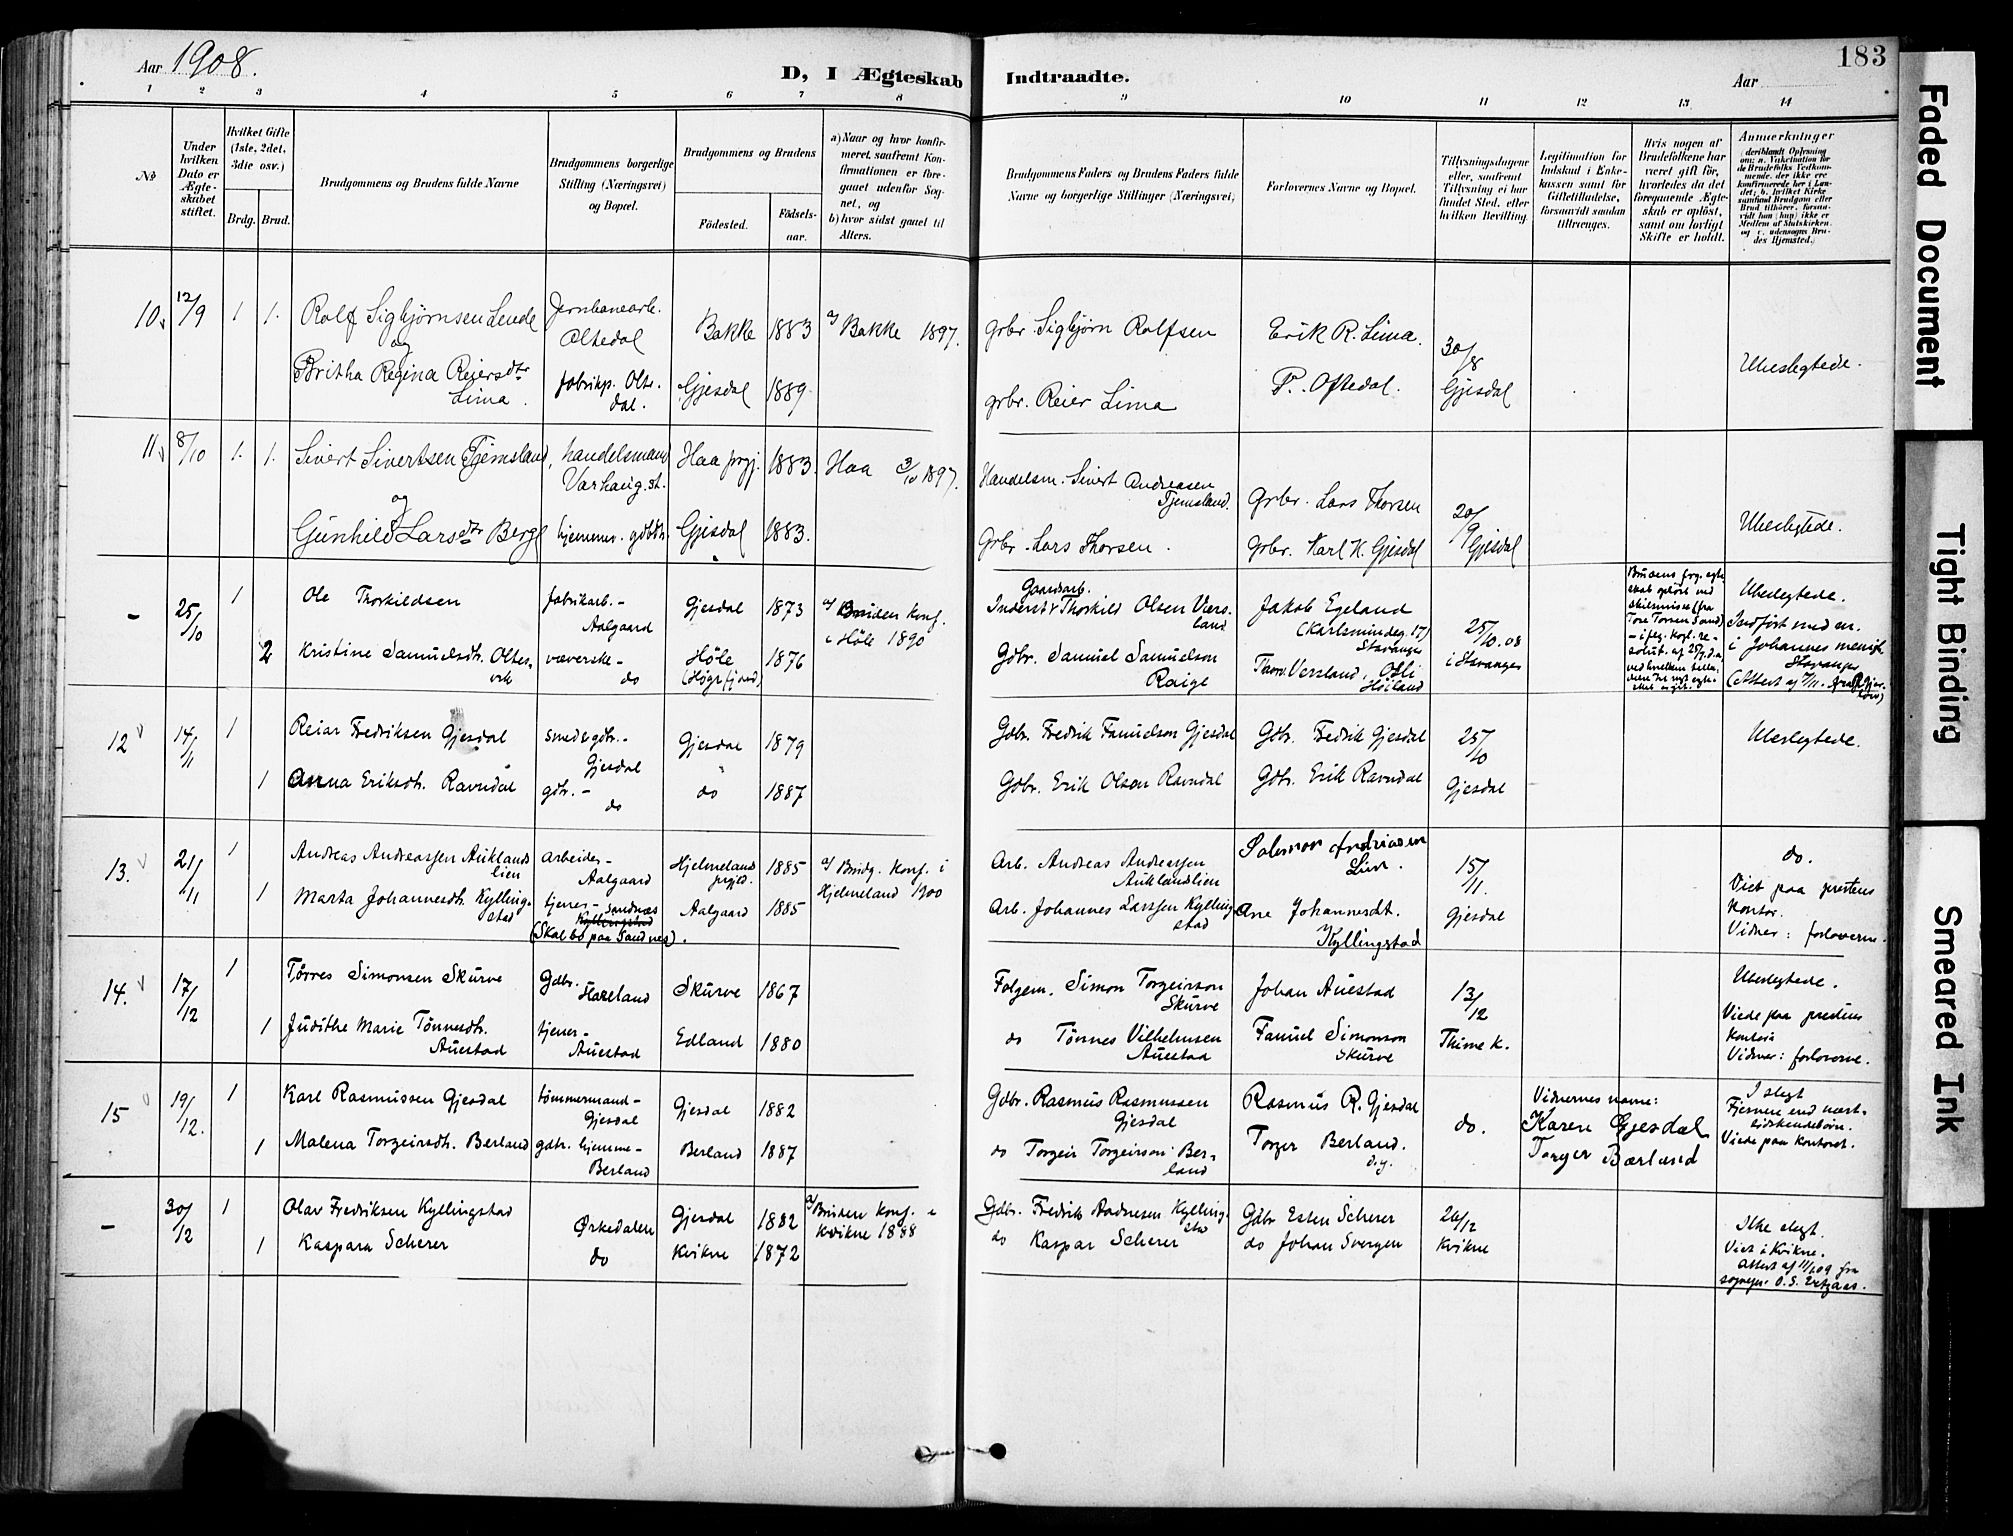 Aar 1908.
D, I Ægteskab Indtraadte.
Aar
183
1 2 3 4 5 6 7 8 9 10 11 12 13 14
No
Under hvilken Dato er Ægteskabet stiftet.
Hvilket Gifte (1ste, 2det, 3die osv.)
Brdg. Brud.
Brudgommens og Brudens fulde Navne
Brudgommens borgerlige Stilling (Næringsvei) og Bopæl.
Brudgommens og Brudens
Födested. Födsels-aar.
a) Naar og hvor konfirmeret, saafremt Konfirmationen er foregaaet udenfor Sognet, og
b) hvor sidst gaaet til Alters.
Brudgommens Faders og Brudens Faders fulde Navne og borgerlige Stillinger (Næringsvei)
Forlovernes Navne og Bopæl.
Tillysningsdagene eller, saafremt Tillysning ei har fundet Sted, efter hvilken Bevilling.
Legitimation for Indskud i Enkekassen samt for Giftetilladelse, forsaavidt saadan tiltrænges.
Hvis nogen af Brudefolkene har været gift för, hvorledes da det foregaaende Ægteskab er oplöst, samt om lovligt Skifte er holdt.
Anmerkninger
(deriblandt Oplysning om: a. Vakcination for de Brudefolks Vedkommende, der ikke ere konfirmerede her i Landet; b. hvilket Kirkesamfund Brudgom eller Brud tilhörer, forsaavidt han (hun) ikke er Medlem af Statskirken, og c. udensogns Brudes Hjemsted.)
10. 12/9 1 1. Rolf Sigbjørnsen Lende Jernbanearb. Oltedal Bakke 1883 a) Bakke 1897. grbr. Sigbjørn Rolfsen Erik R. Lima. 30/8 Gjesdal Ubeslegtede.
og
Britha Regina Reiersdtr Lima. fabrikp. Oltedal. Gjesdal 1889. grbr. Reier Lima P. Oftedal.
11. 8/10 1. 1. Sivert Sivertsen Tjemsland, handelsmand Varhaug st. Haa prgj. 1883. Haa 3/10 1897. Handelsm. Sivert Andreasen Tjemsland. Grbr. Lars Thorsen 20/9 Gjesdal Ubeslegtede.
og
Gunhild Larsdtr Berge hjemmev. gdbdtr. Gjesdal 1883. Grbr. Lars Thorsen. Grbr. Karl K. Gjesdal
- 25/10 1 Ole Thorkildsen fabrikarb. - Aalgaard Gjesdal 1873 a) Bruden konf. i Høle 1890 Gaardarb. Inderst Thorkild Olsen Værsland Jakob Egeland (Karlsmindeg. 17) Stavanger 25/10.08 i Stavanger
2 Kristine Samuelsdtr. Oltesvik væverske - do Høle (Høgsfjord) 1876 Gdbr. Samuel Samuelson Raige Thom. Versland, Høiland
Brudens frg. egteskab opløst ved skilsmisse (fra Tore Torsen Sand)
Ubeslegtede.
Indført med nr. i Johannes menigh. Stavanger
12 14/11 1 Reiar Fredriksen Gjesdal smed & gdbr. - Gjesdal Gjesdal 1879 Gdbr. Fredrik Famuelson Gjesdal Gdbr. Fredrik Gjesdal 25/10 Gjesdal Ubeslegtede.
1 Anna Eriksdtr. Ravndal gdtr. - do do 1887 Gdbr. Erik Olson Ravndal Gdbr. Erik Ravndal
13. 21/11 1 Andreas Andreassen Auklandslien arbeider - Aalgaard Hjelmeland prgjld. 1885 a) Brudg. konf. i Hjelmeland 1900 Arb. Andreas Andreassen Auklandlien 15/11. Gjesdal do.
1 Marta Johannesdtr. Kyllingstad tjener - Sandnes Kyllingstad (Skal bo paa Sandnes). Aalgaard 1885 Arb. Johannes Larssen Kyllingstad Ane Johannesdt. Kyllingstad
Viet paa prestens kontor. Vidner: forloverne.
14. 17/12 1 Tørres Simonsen Skurve Gdbr. Haaland Skurve 1867 Folgem. Simon Torgeirson Skurve Johan Auestad 13/12 Thime k. Ubeslegtede.
1 Judithe Marie Tønnesdtr. Auestad tjener - Auestad Edland 1880 do Tønnes Vilhelmsen Auestad Famuel Simonson Skurve
Viede paa prestens kontor Vidner: forloverne.
15 19/12. 1 Karl Rasmussen Gjesdal tømmermand - Gjesdal Gjesdal 1882 Gdbr. Rasmus Rasmussen Gjesdal Rasmus R. Gjesdal do. Vidnernes navne: Karen Gjesdal
1 Malena Torgeirsdtr. Berland gdtr. hjemme - Berland Berland 1887 do Torgeir Torgeirson Berland Torger Berland. Torger Bærland
I slegt Fjernere end næstsødskendebørn. Viede paa kontoret.
- 30/12 1 Olav Fredriksen Kyllingstad Ørkedalen Gjesdal 1882 a) Bruden konf. i Kvikne 1888 Gdbr. Fredrik Aadnesen Kyllingstad Gdbr Esten Scherer 26/12 Kvikne
1 Kaspara Scherer do Kvikne 1872 do Kaspar Scherer do Johan Svergen
Ikke slegt.
Viet i Kvikne.
Attest af 11/1 09 fra
sognepr. O. S.
Faded Document
Tight Binding
Smeared Ink